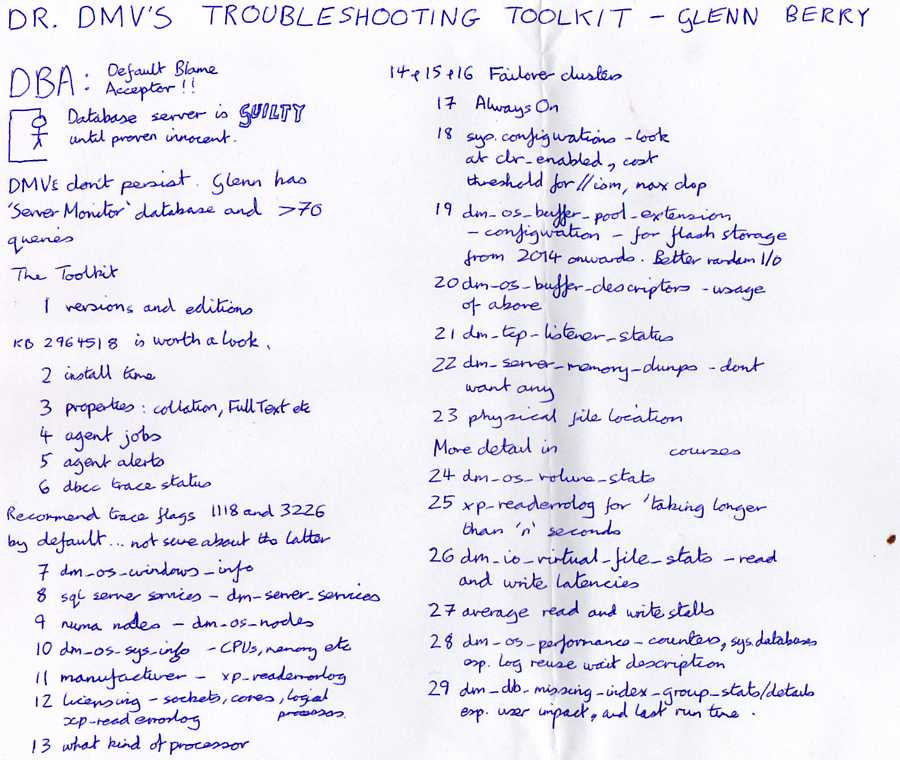 DR. DMV'S TROUBLESHOOTING TOOLKIT - GLENN BERRY
DBA: Default Blame
Acceptor!!
Database server is GUILTY
until proven innocent.
DMVs don't persist. Glenn has
'Server Monitor' database and >70
queries
The Toolkit
1 versions and editions
KB 2964518 is worth a look.
2 install time
3 properties: collation, FullText etc
4 agent jobs
5 agent alerts
6 dbcc trace status
Recommend trace flags 1118 and 3226
by default... not sure about the latter
7 dm_os_windows_info
8 sql server services - dm_server_services
9 numa nodes - dm_os_nodes
10 dm_os_sys_info - CPUs, memory etc
11 manufacturer - xp_readerrorlog
12 licensing - sockets, cores, logical
processors.
xp_readerrorlog
13 what kind of processor
14 & 15 & 16 Failover clusters
17 Always On
18 sys.configurations - look
at clr_enabled, cost
threshold for //ism, max dop
19 dm_os_buffer_pool_extension
_configuration - for flash storage
from 2014 onwards. Better random I/O
20 dm_os_buffer_descriptors - usage
of above
21 dm_tcp_listener_status
22 dm_server_memory_dumps - dont
want any
23 physical file location
More detail in courses
24 dm_os_volume_stats
25 xp_readerrorlog for 'taking longer
than 'n' seconds
26 dm_io_virtual_file_stats - read
and write latencies
27 average read and write stalls
28 dm_os_performance_counters, sys.databases
esp. log reuse wait description
29 dm_db_missing_index_group_stats/details
esp. user impact, and last run time.